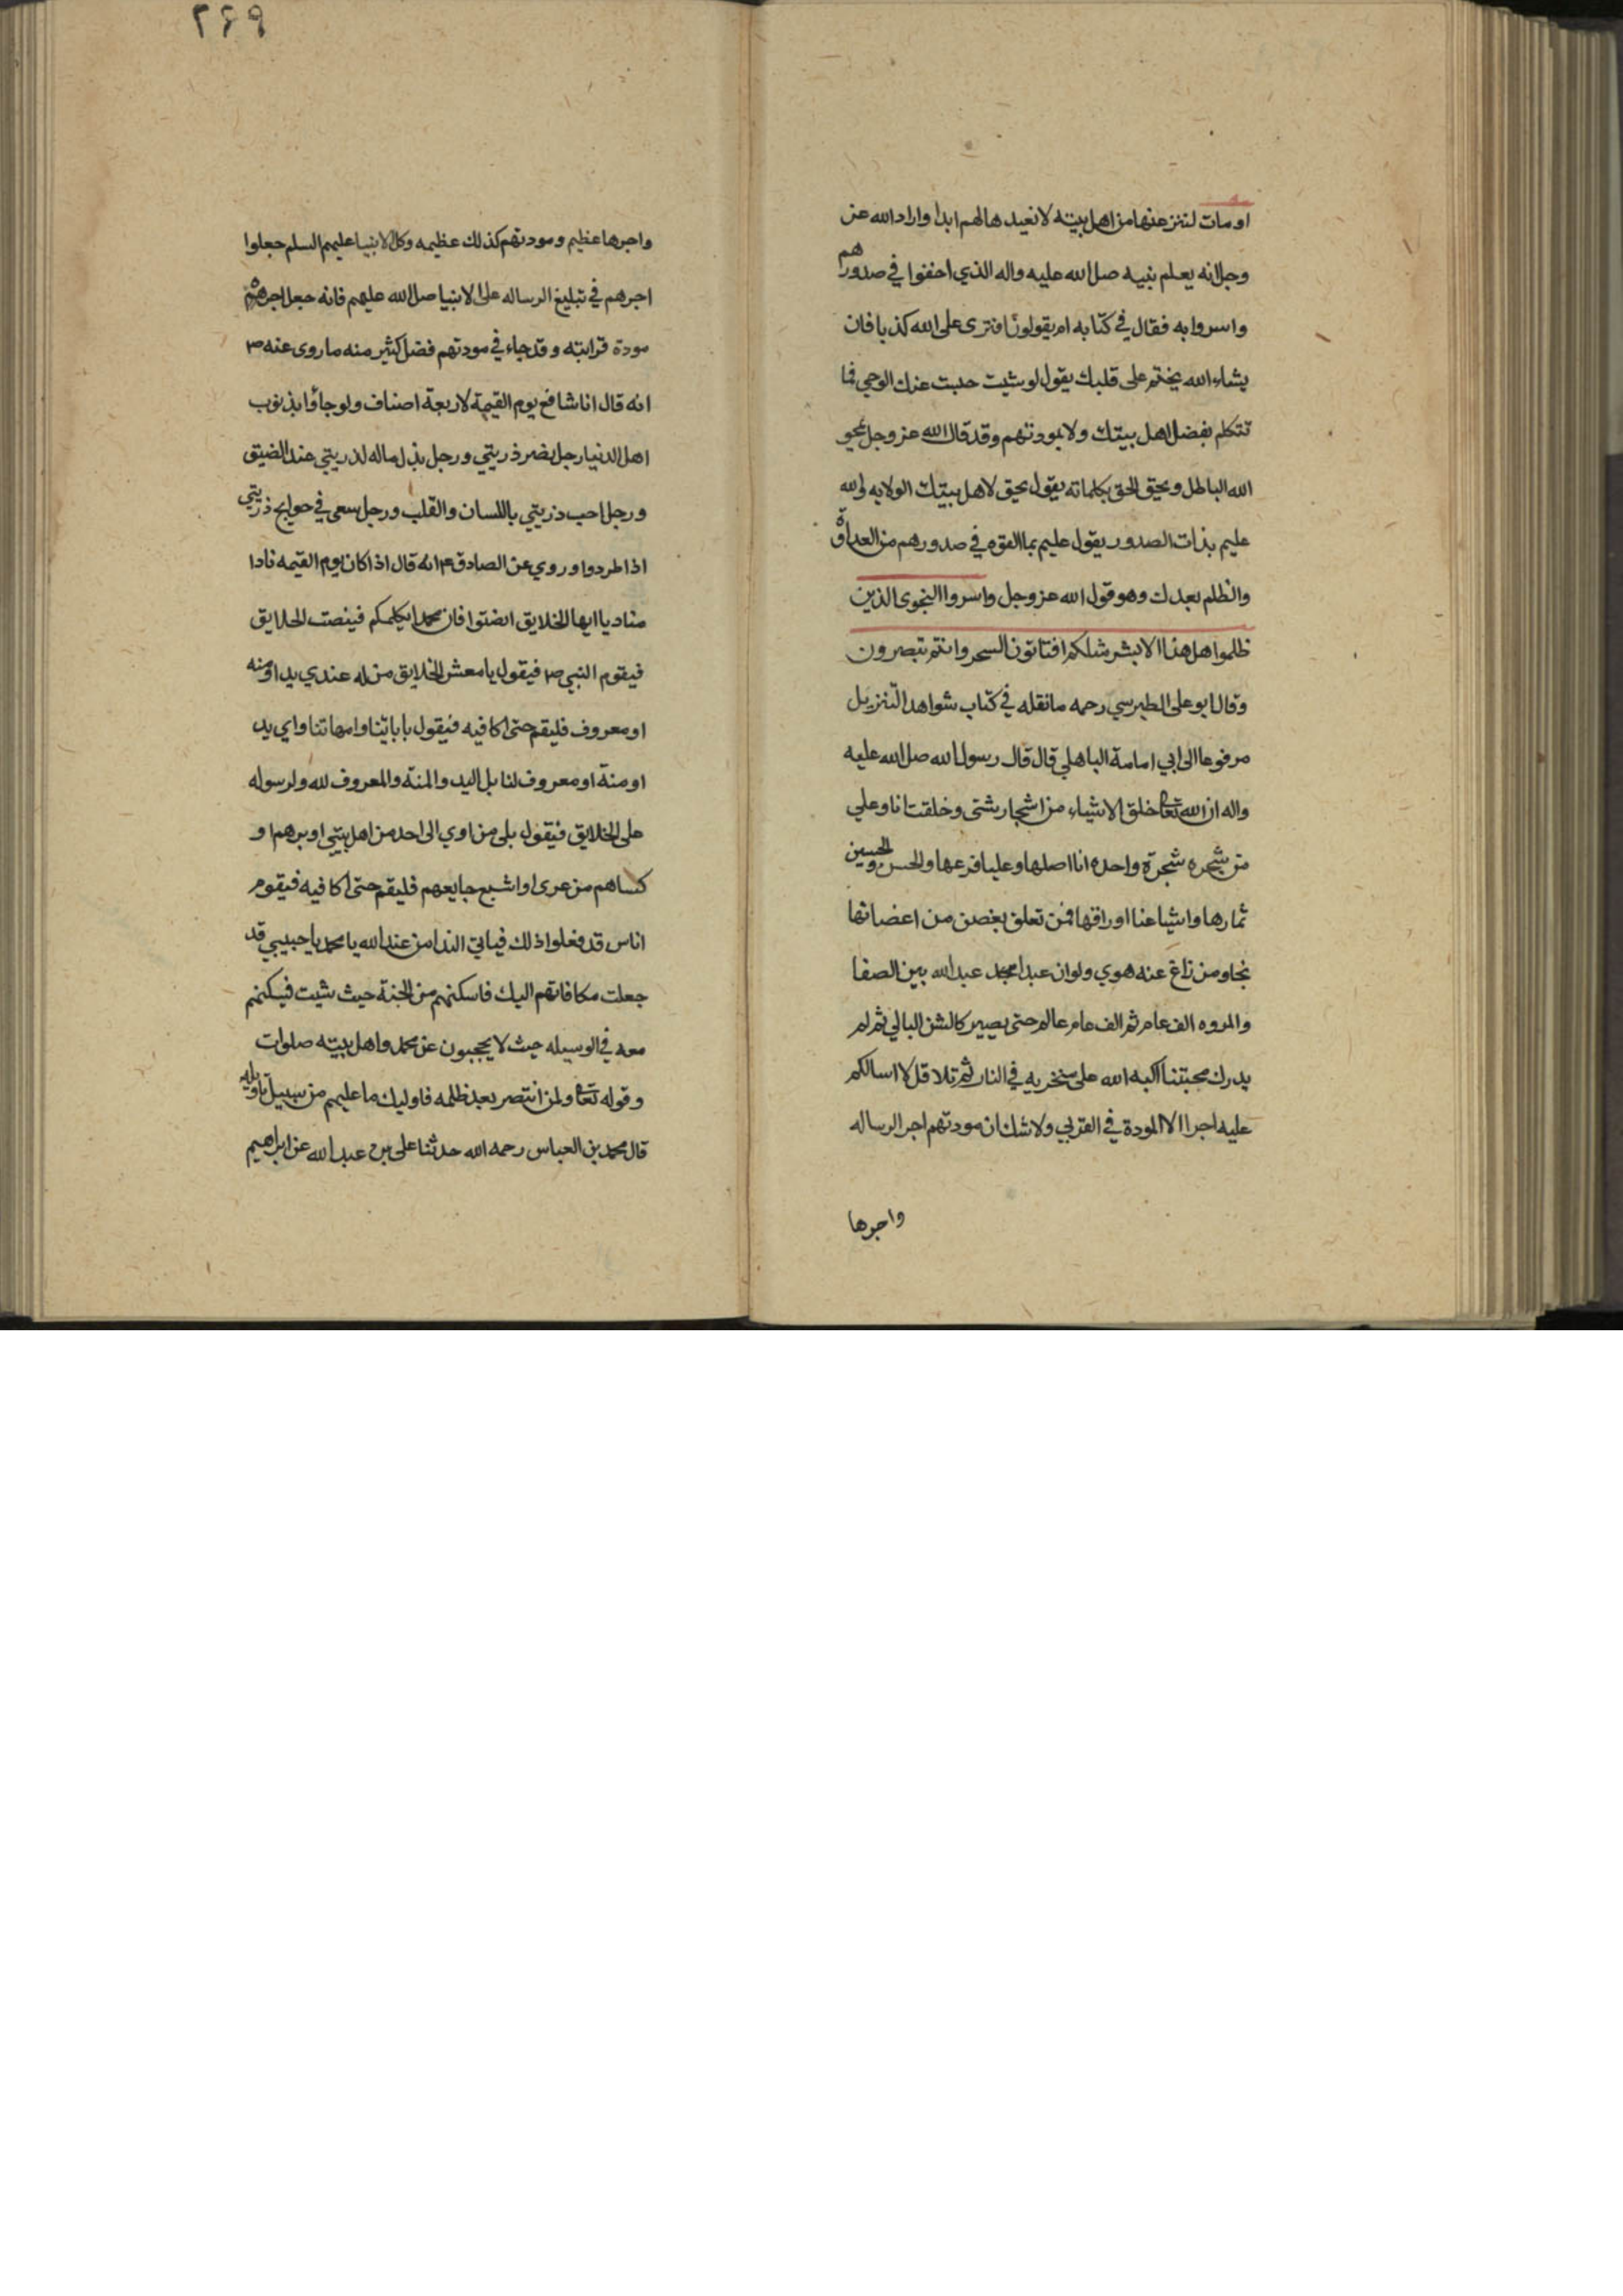 او مات لننزعنها من اهل بيته لا نعيدها لهم ابدا واراد الله عز
وجل انه يعلم نبيه صل الله عليه واله الذي اخفوا في صدورهم
واسروا به فقال في كتابه ام يقولون افترى على الله كذبا فان
يشاء الله يختم على قلبك يقول لو شيت حبست عنك الوحي فما
تتكلم بفضل اهل بيتك ولا بمودتهم وقد قال الله عز وجل يمحو
الله الباطل ويحق الحق بكلماته يقول يحق لاهل بيتك الولايه والله
عليم بذات الصدور يقول عليم بما القوه في صدورهم من العداوة
والظلم بعدك وهو قول الله عز وجل واسروا النجوى الذين
ظلموا هل هذا الا بشر مثلكم افتاتون السحر وانتم تبصرون
وقال ابو على الطبرسي رحمه ما نقله في كتاب شواهد التنزيل
مرفوعا الى ابي امامة الباهلي قال قال رسول الله صل الله عليه
واله ان الله تعا خلق الاشياء من اشجار شتى وخلقت انا وعلي
من شجره شجرة واحده انا اصلها وعليا فرعها والحسن والحسين
ثمارها واشياعنا اوراقها فمن تعلق بغصن من اعضانها
نجا ومن زاغ عنه هوي ولو ان عبدا عبد الله بين الصفا
والمروه الف عام ثم الف عام حتى يصير كالشن البالي ثم لم
يدرك محبتنا اكبه الله على منخريه في النار ثم تلا قل لا اسالكم
عليه اجرا الا المودة في القربي ولا شك ان مودتهم اجر الرساله
واجرها
٢٤٩
واجرها عظيم ومودتهم كذلك عظيمه وكل الانبيا عليهم السلم جعلوا
اجرهم في تبليغ الرساله على الا نبيا صل الله عليهم فانه جعل اجره
مودة قرابته وقد جاء في مودتهم فضل كثير منه ما روى عنه ص
انه قال انا شافع يوم القيمة لاربعة اصناف ولو جاؤا بذنوب
اهل الدنيا رجل نصر ذريتي ورجل بذل ماله لذريتي عند الضيق
ورجل احب ذريتي باللسان والقلب ورجل سعى في حوايج ذريتي
اذا طردوا وروي عن الصادق ع انه قال اذا كان يوم القيمه نادا
مناديا ايها الخلايق انصتوا فان محمدا يكلمكم فينصت الخلايق
فيقوم النبي ص فيقول يا معشر الخلايق من له عندي يدا او منه
او معروف فليقم حتى اكافيه فيقول بابائنا وامهاتنا واي يد
او منة او معروف لنا بل اليد والمنة والمعروف لله ولرسوله
على الخلايق فيقول بلى من اوي الى احد من اهل بيتي او برهم او
كساهم من عرى او اشبع جايعهم فليقم حتى اكافيه فيقوم
اناس قد فعلوا ذلك فياتي الندا من عند الله يا محمد يا حبيبي قد
جعلت مكافاتهم اليك فاسكنهم من الجنة حيث شيت فيسكنهم
معه في الوسيله حيث لا يحجبون عن محمد واهل بيته صلوات
وقوله تعا ولمن انتصر بعد ظلمه فاوليك ما عليهم من سبيل تاويله
قال محمد بن العباس رحمه الله حدثنا على بن عبد الله عن ابراهيم